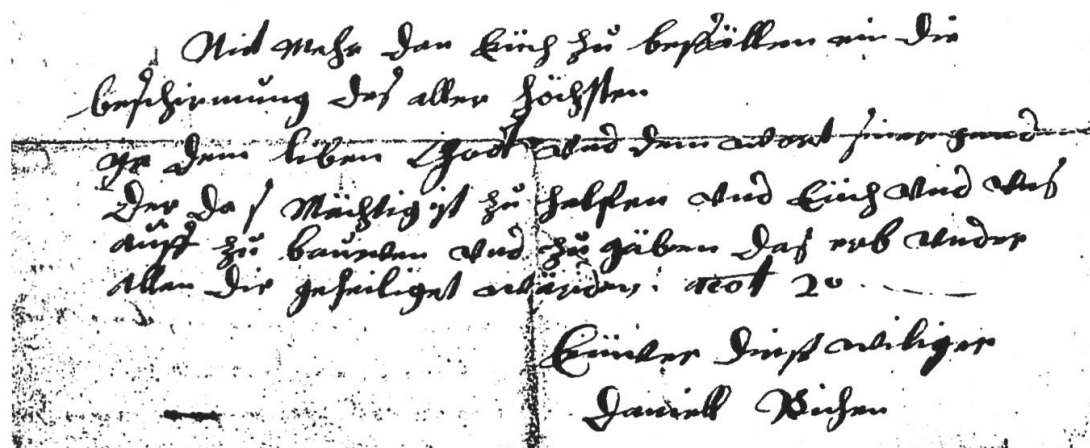 Nid mehr dan Eüch zu befählen ein die
beschirmung des aller höchsten
Ja dem liben Godt vnd dem wort siner gnad
Der da Mächtig ist zu helffen vnd Eüch vnd vns
auff zu bauwen vnd zu gäben das erb vnder
allen die geheiliget wärden. act 20
Eüwer dinst williger
Daniell Richen